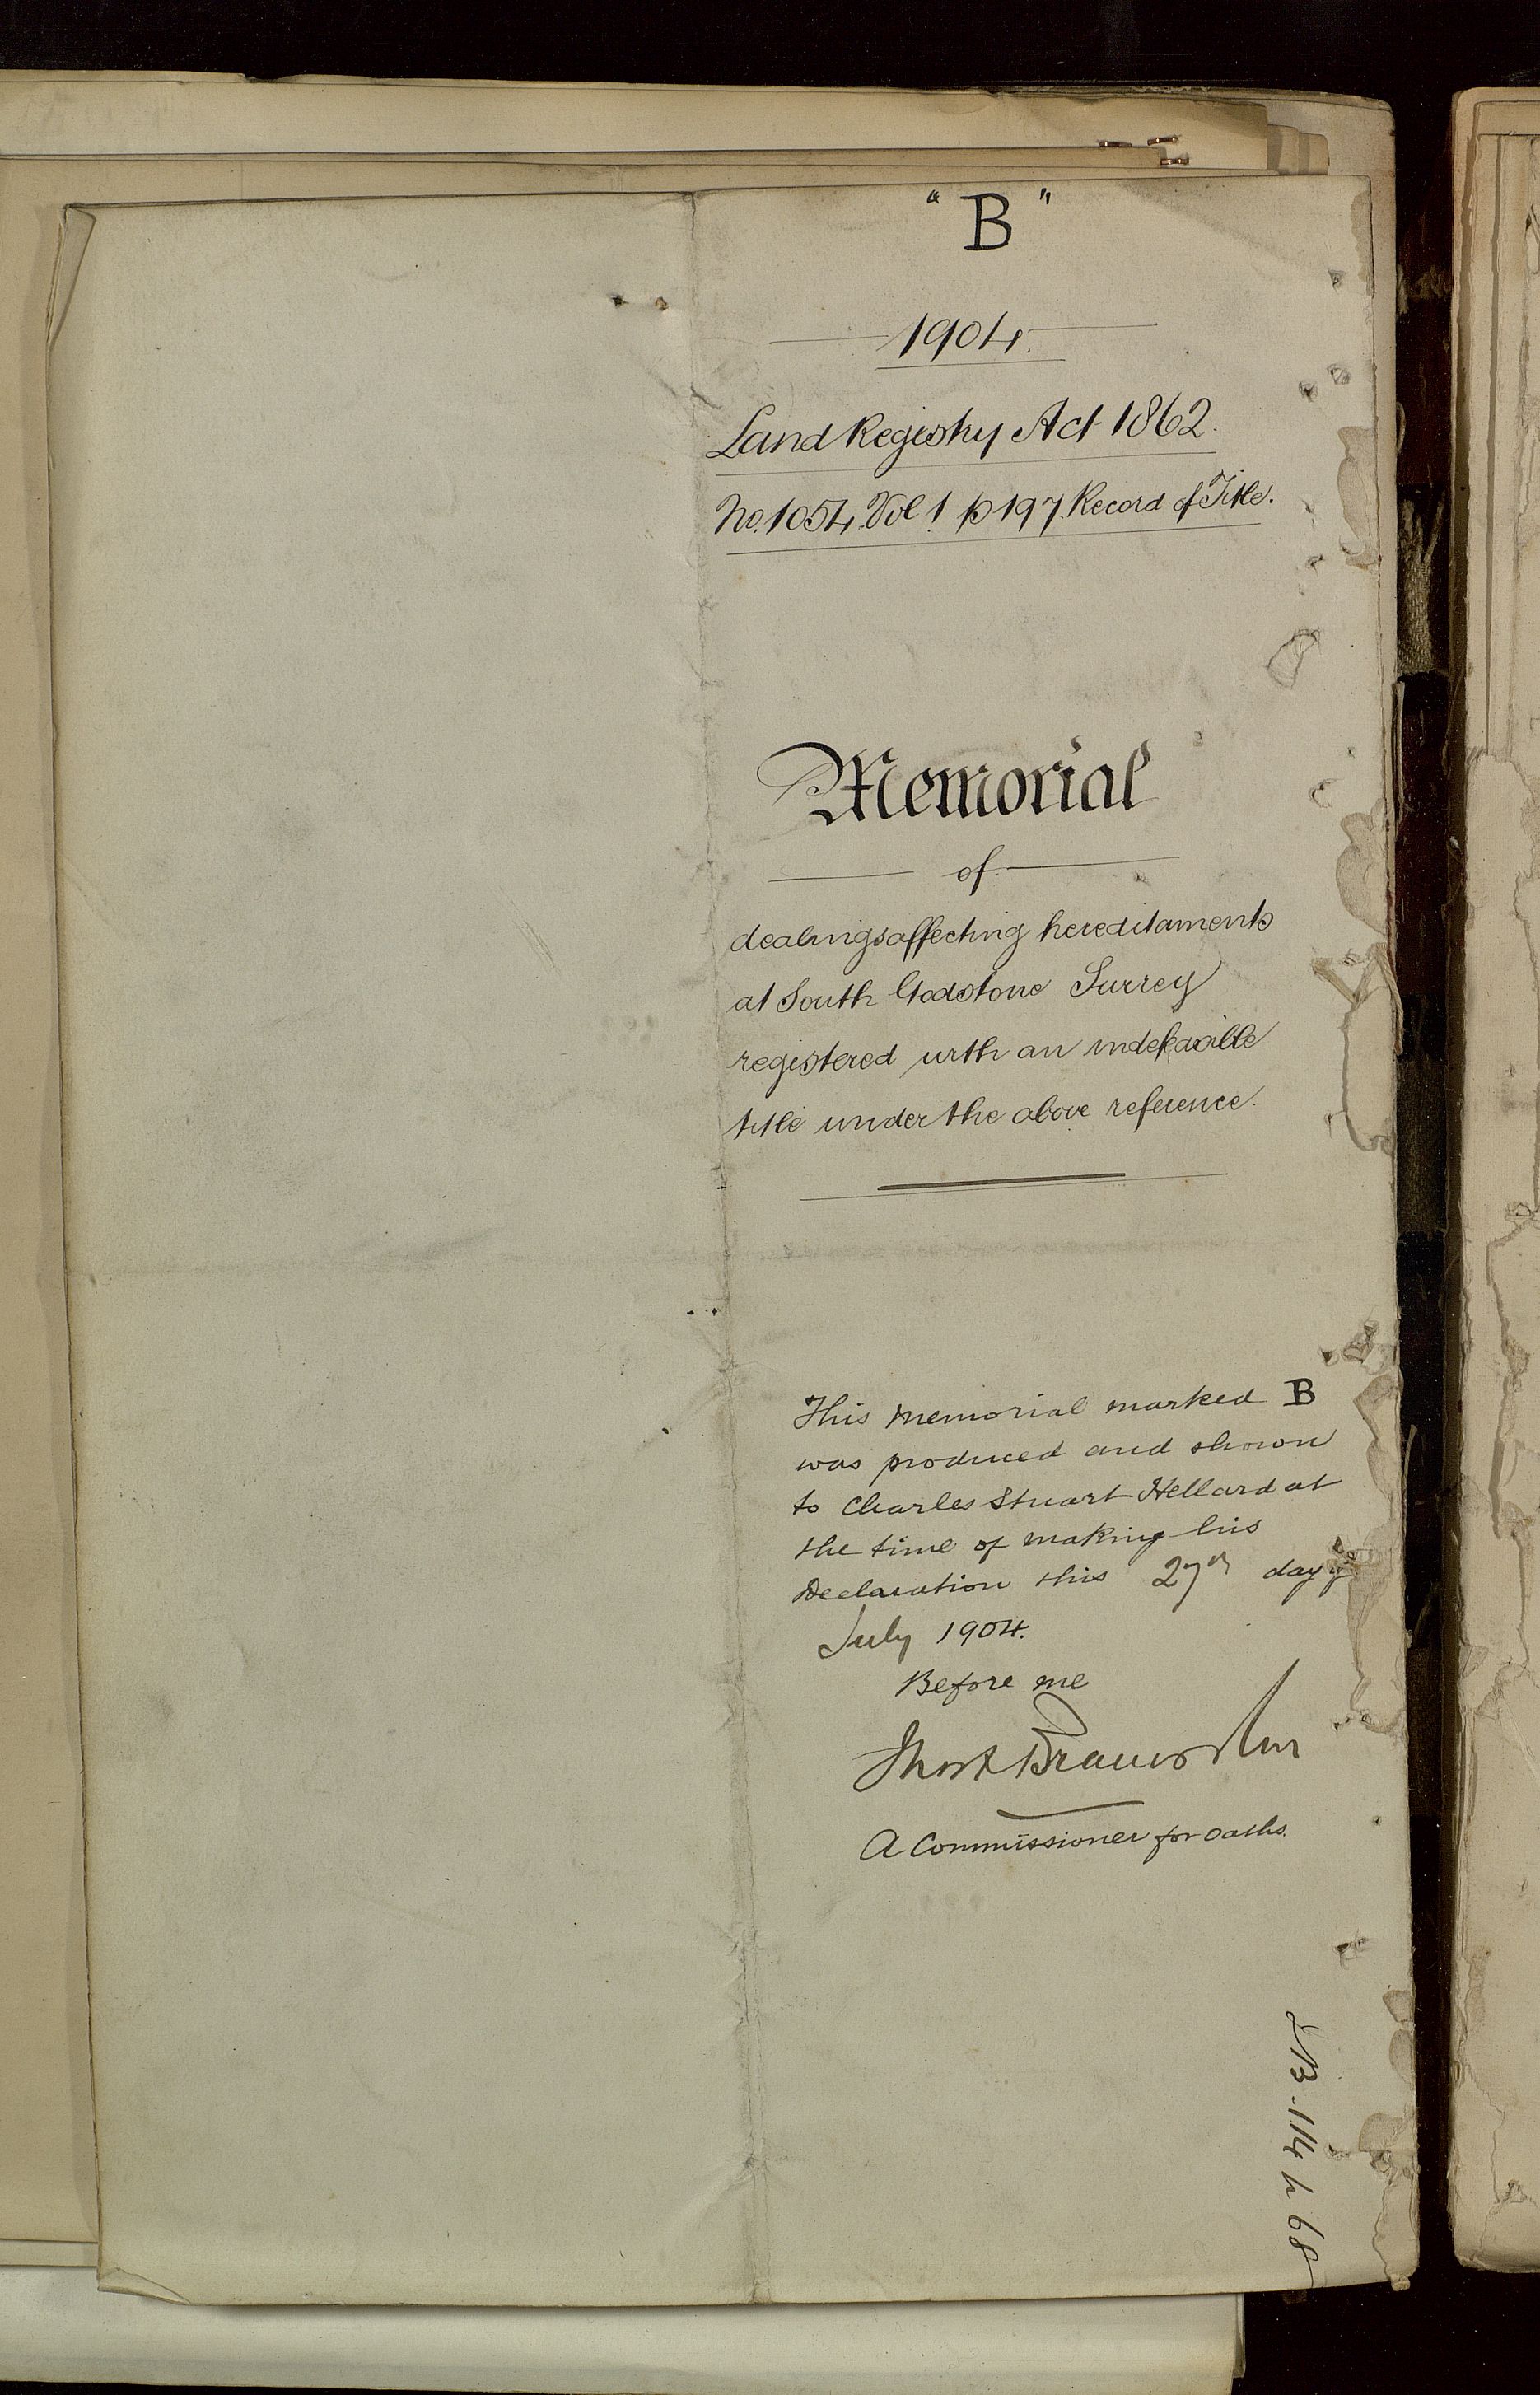 "B"
1904.
Land Registry Act 1862.
No. 1054. Vol 1. p 197. Record of Title.
Memorial
of
dealings affecting hereditaments
at South Godstone Surrey
registered with an indefeasible
title under the above reference.
This memorial marked B
was produced and shown
to Charles Stuart Hellard at
the time of making his
Declaration this 27th day of
July 1904.
Before me
A Commissioner for Oaths.